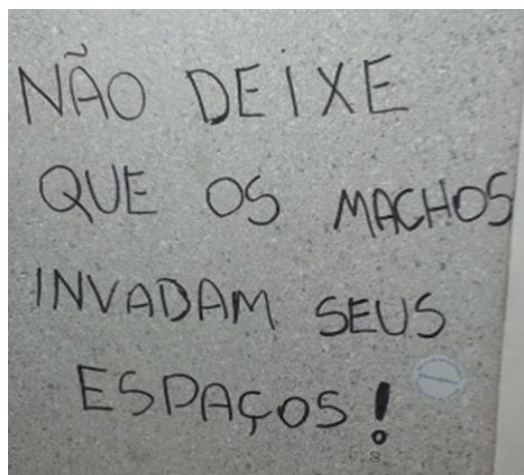 NÃO DEIXE
QUE OS MACHOS
INVADAM SEUS
ESPAÇOS!